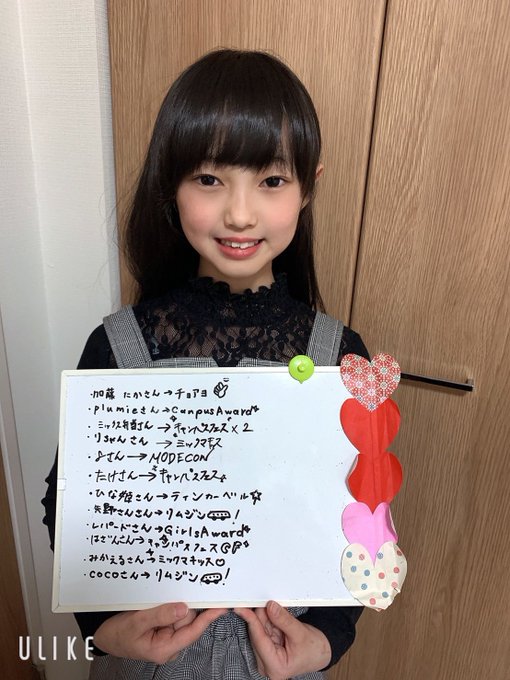 ・加藤 にかさん→チョアヨ
・plumieさん→CanpusAward
・ミックス弁当さん→キャンパスフェス×2
・りちゃんさん→ミックマキス
・&さん→MODECON
・たけさん→キャンパスフェス
・ひな姫さん→ティンカーベル☆
・矢野さんさん→リムジン!
・レパードさん→GirlsAward
・はざんさん→キャンパスフェス
・みかえるさん→ミックマキッス♡
・cocoさん→リムジン!
ULIKE